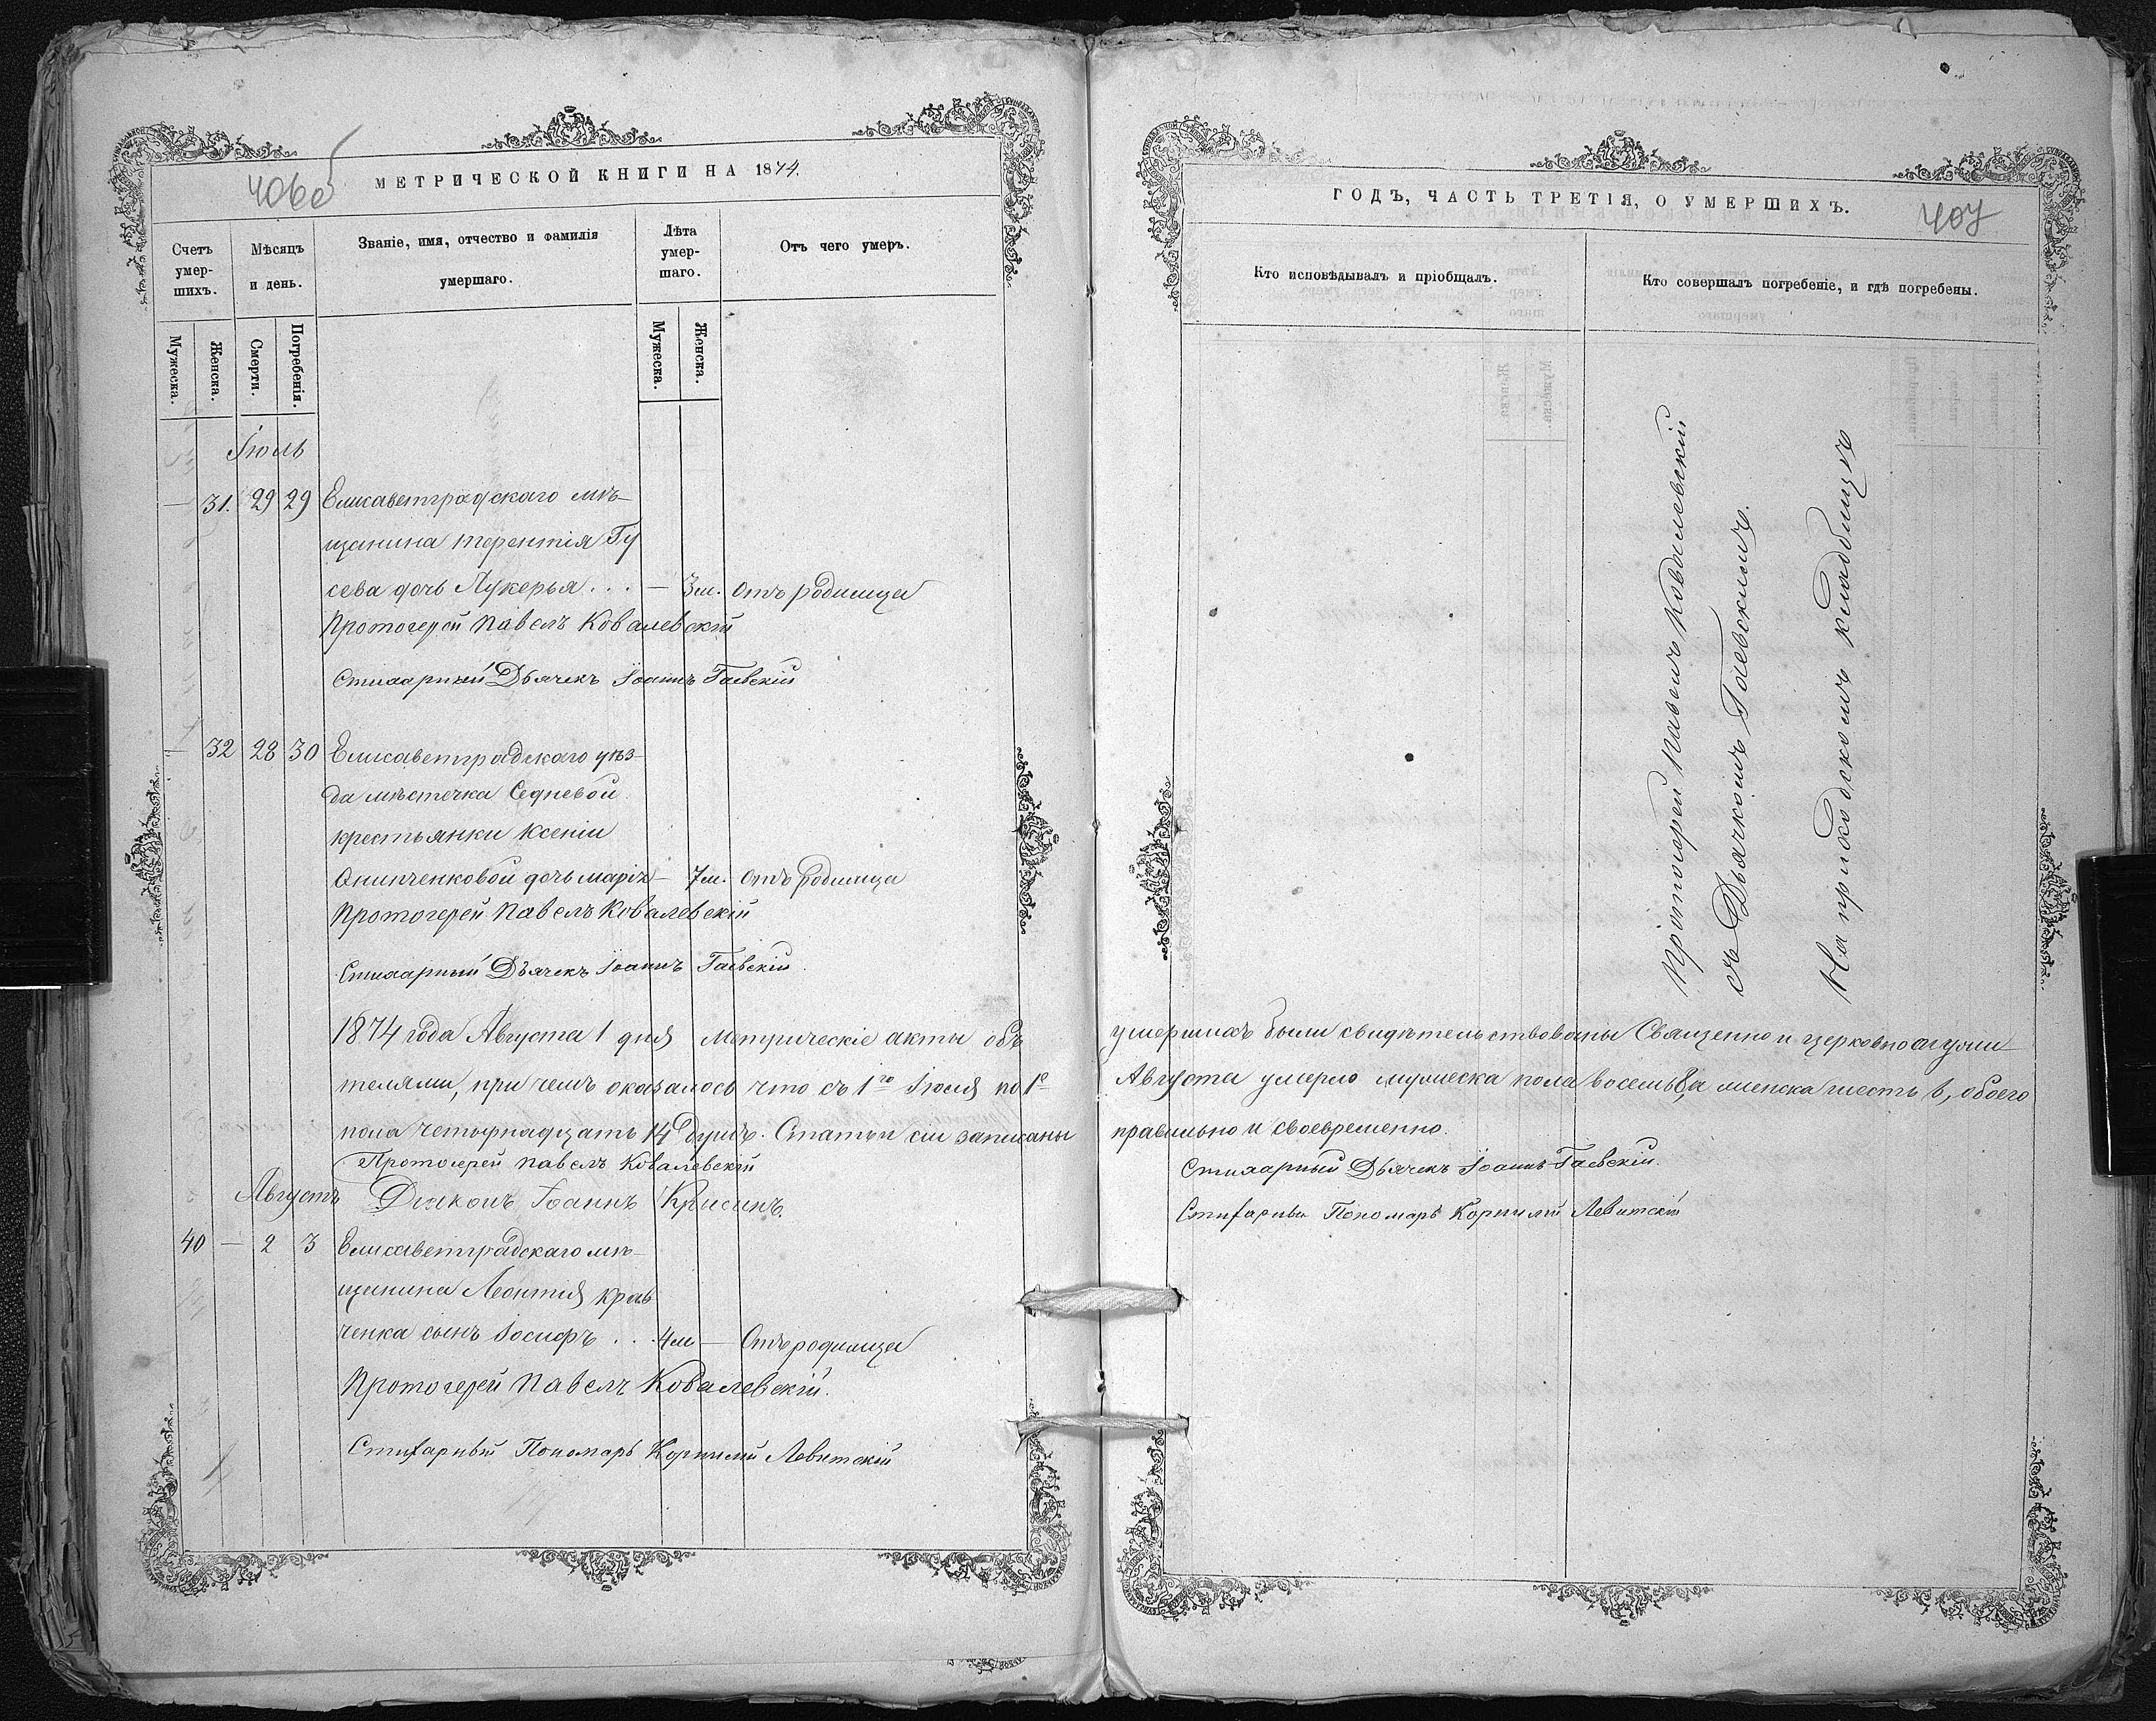 406об
МЕТРИЧЕСКОЙ КНИГИ НА 1874.
Счетъ умер- шихъ.
Мѣсяцъ и день.
Званіе, имя, отчество и фамилія умершаго.
Лѣта умер- шаго.
Отъ чего умеръ.
Мужеска.
Женска.
Смерти.
Погребенія.
Мужеска.
Женска.
Іюль
— 31. 29 29 Елисаветградскаго мѣ-
щанина Терентія Гу
сева дочь Лукерья . . . — 3м. отъ родимца
Протоіерей Павелъ Ковалевскій
Стихарный Дьячекъ Іоаннъ Гаевскій
— 32 28 30 Елисаветградскаго уѣз-
да мѣстечка Седневой
крестьянки Ксеніи
Онипченковой дочь Марія — 7м. отъ родимца
Протоіерей Павелъ Ковалевскій
Стихарный Дьячекъ Іоаннъ Гаевскій
1874 года Августа 1 дня Метрическіе акты объ
телями, при чемъ оказалось что съ 1го Іюля по 1е
пола четырнадцать 14 душъ. Статьи сіи записаны
Протоіерей Павелъ Ковалевскій
Августъ Діаконъ Іоаннъ Крисинъ.
40 — 2 3 Елисаветградскаго мѣ-
щанина Леонтія Крав
ченка сынъ Іосифъ . . . 4м — Отъ родимца
Протоіерей Павелъ Ковалевскій.
Стихарный Пономарь Корнилій Левитскій
ГОДЪ, ЧАСТЬ ТРЕТІЯ, О УМЕРШИХЪ.
407
Кто исповѣдывалъ и пріобщалъ.
Кто совершалъ погребеніе, и гдѣ погребены.
Протоіерей Павелъ Ковалевскій
съ Дьячкомъ Гаевскимъ.
На приходскомъ кладбищѣ
умершихъ были свидѣтельствованы Священно и церковнослужи-
Августа умерло мужеска пола восемь 8, а женска шесть 6, обоего
правильно и своевременно.
Стихарный Дьячекъ Іоаннъ Гаевскій.
Стихарный Пономарь Корнилій Левитскій